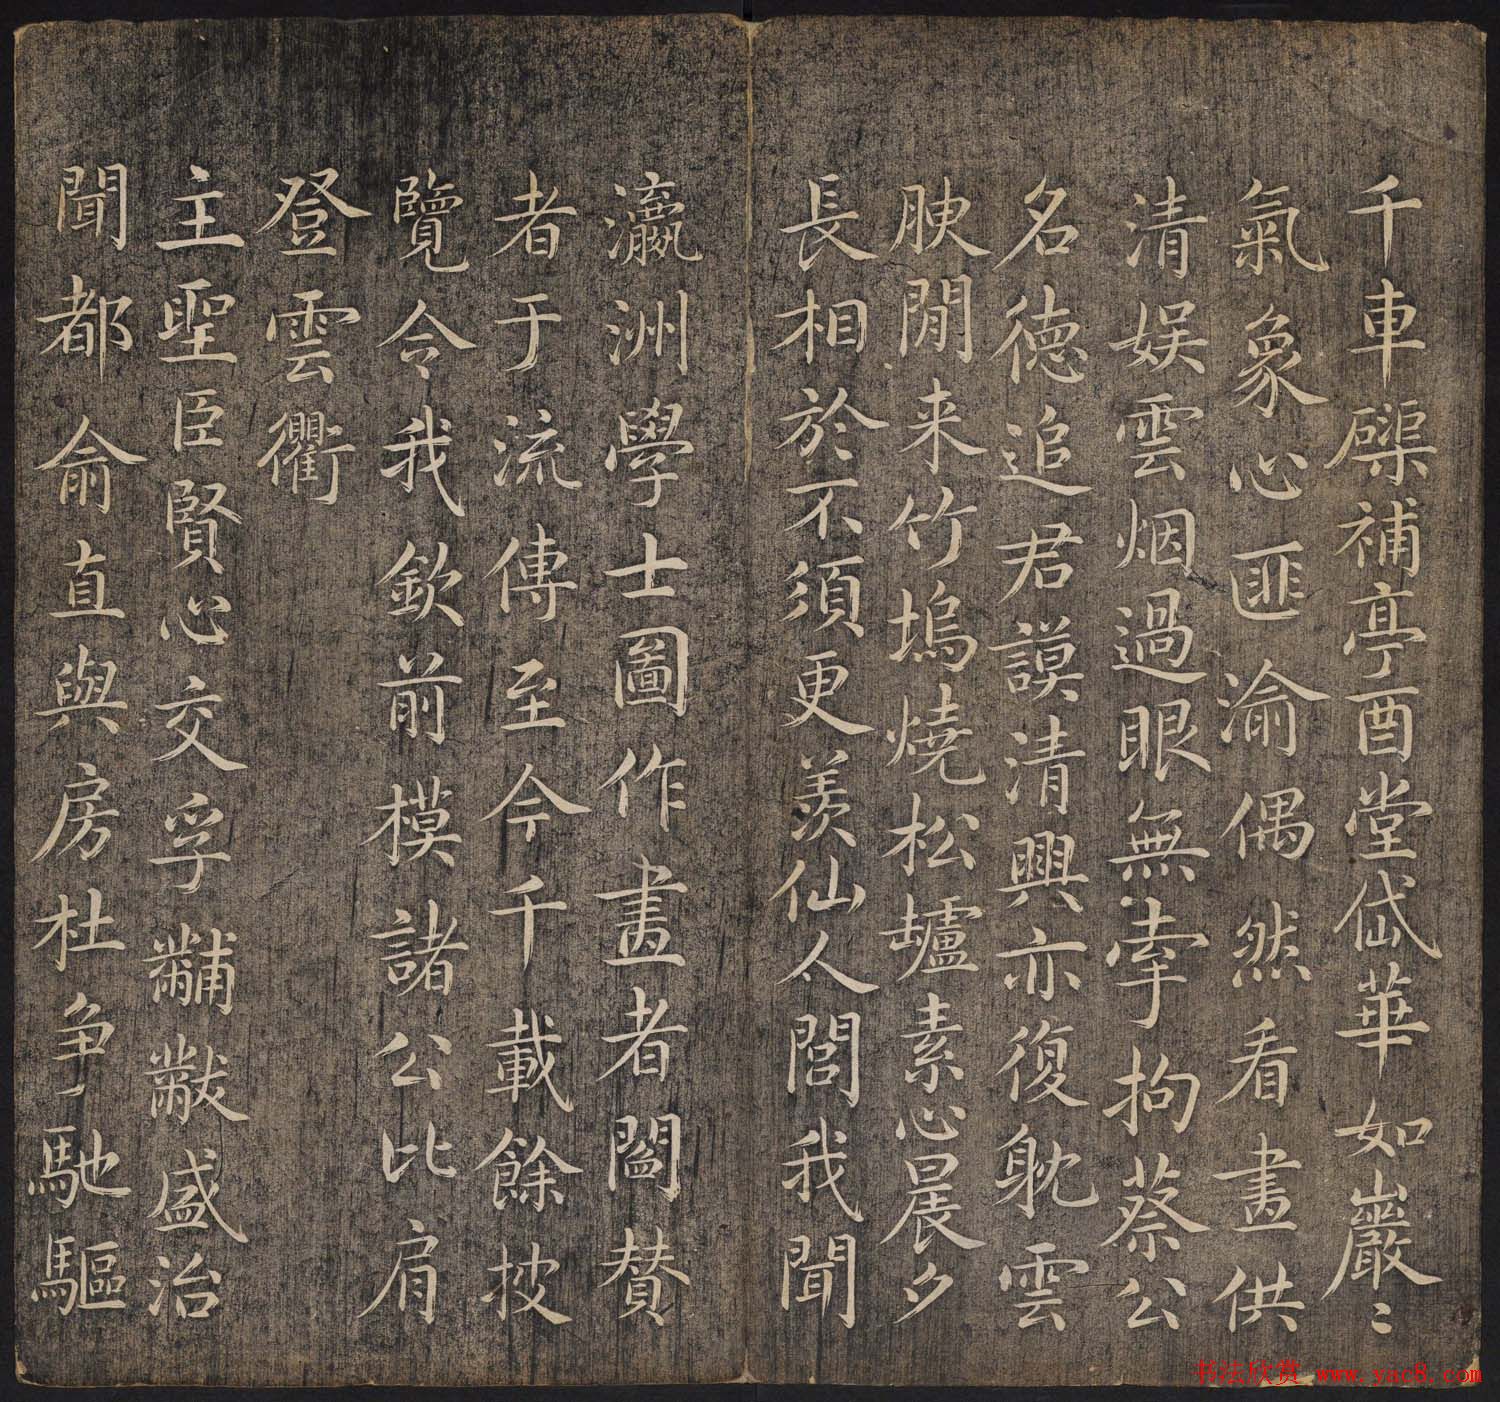 千車磲補亭酉堂岱華如巖〻
氣象心匪渝偶然看畫供
清娱雲烟過眼無牽拘蔡公
名德追君謨清興亦復耽雲
腴閒来竹塢燒松爐素心晨夕
長相於不須更羨仙人閭我聞
瀛洲學士圖作畫者閻賛
者于流傳至今千載餘披
覽令我欽前模諸公比肩
登雲衢
主聖臣賢心交孚黼黻盛治
聞都俞直與房杜争馳驅
书法欣赏 www.yac8.com